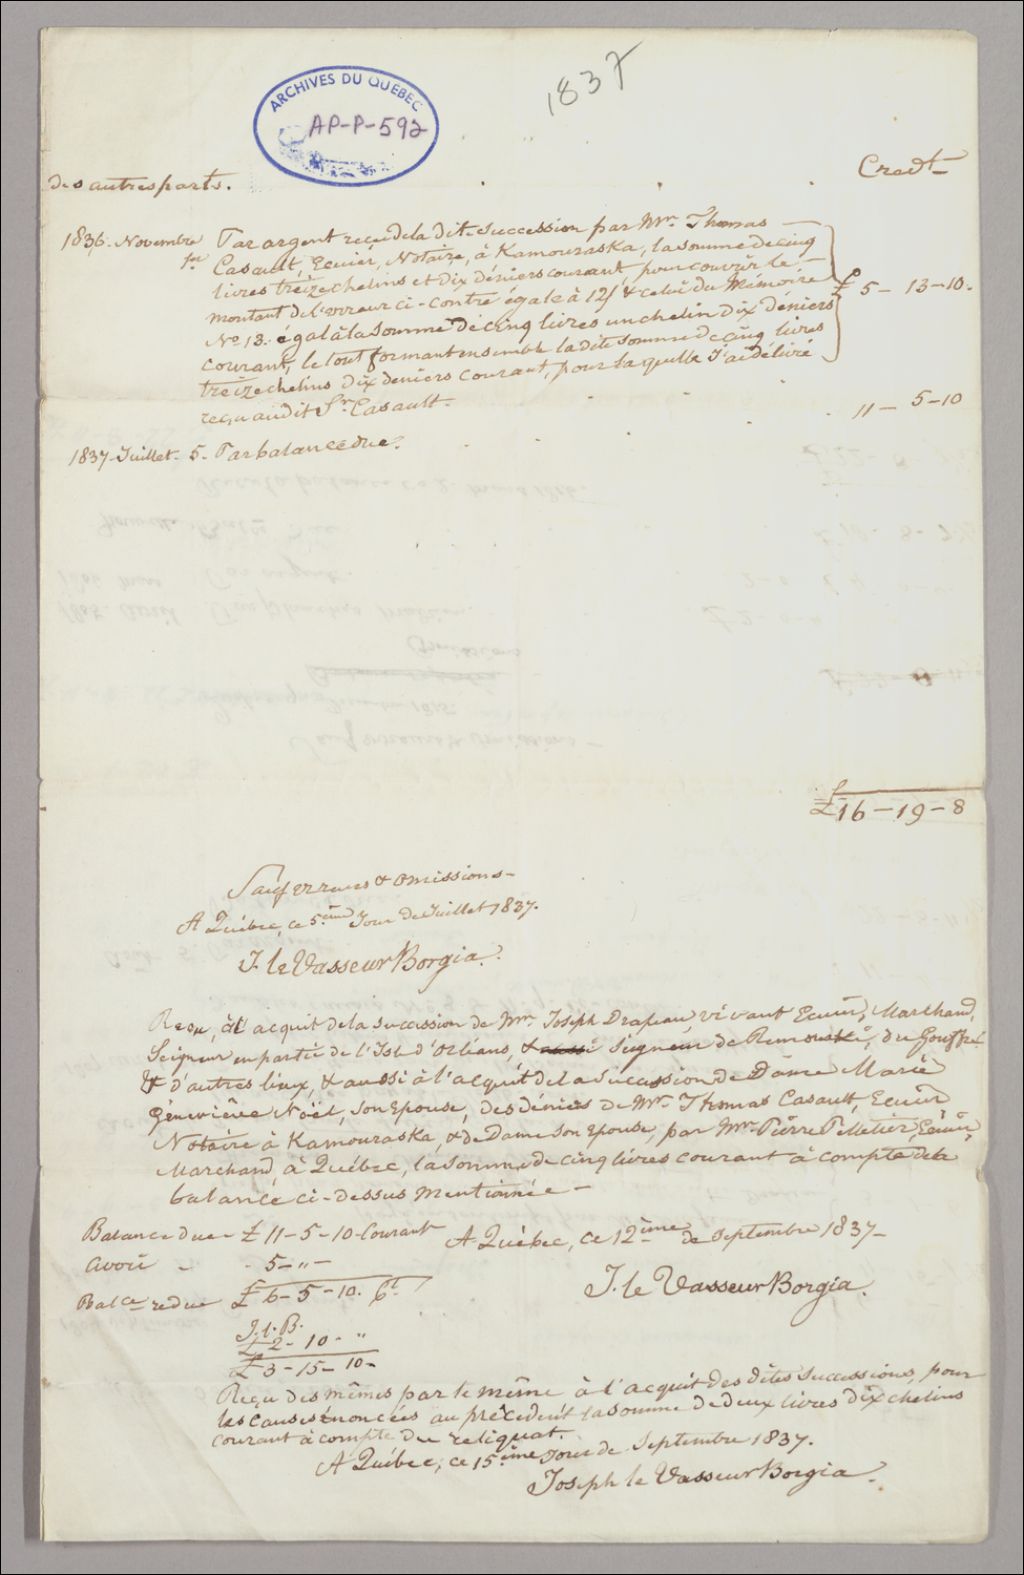 1837
ARCHIVES DU QUÉBEC
AP-P-592
Credt
des autres parts.
1836. Novembre 1er Par argent reçu de la dite succession par Mr. Thomas
Casault, Ecuier, Notaire, à Kamouraska, la somme de cinq
livres treize chelins et dix déniers courant, pour couvrir le
montant de l'erreur ci-contre égale à 12/ & celui du Mémoire
No 13. égal à la somme de cinq livres un chelin dix déniers
courant, le tout formant ensemble la dite somme de cinq livres
treize chelins dix deniers courant, pour laquelle j'ai délivré
reçu audit Sr. Casault.
£ 5 - 13 - 10.
1837 Juillet 5. Par balance due.
11 - 5 - 10
£ 16 - 19 - 8
Sauf erreurs & omissions -
A Québec, ce 5ième Jour de Juillet 1837.
J. le Vasseur Borgia.
Reçu, à l'acquit de la succession de Mr. Joseph Drapeau, vivant Ecuier, Marchand,
Seigneur en partie de l'Isle d'Orléans, & aussi Seigneur de Rimouski, du Gouffre
& d'autres lieux, & aussi à l'acquit de la succession de Dame Marie
Géneviève Noël, son Epouse, des déniers de Mr. Thomas Casault, Ecuier
Notaire à Kamouraska, & de Dame son Epouse, par Mr. Pierre Pelletier, Ecuier,
Marchand, à Québec, la somme de cinq livres courant à compte de la
balance ci-dessus mentionnée -
Balance due - £ 11 - 5 - 10 Courant
A Québec, ce 12ième de Septembre 1837 -
avoir - - 5 - " -
J. le Vasseur Borgia.
Balce redue £ 6 - 5 - 10. Ct.
J. l. B.
£ 2 - 10 - "
£ 3 - 15 - 10 -
Reçu des mêmes par le même à l'acquit des dites successions, pour
les causes énoncées au précédent la somme de deux livres dix chelins
courant à compte du reliquat.
A Québec, ce 15ième Jour de Septembre 1837.
Joseph le Vasseur Borgia.